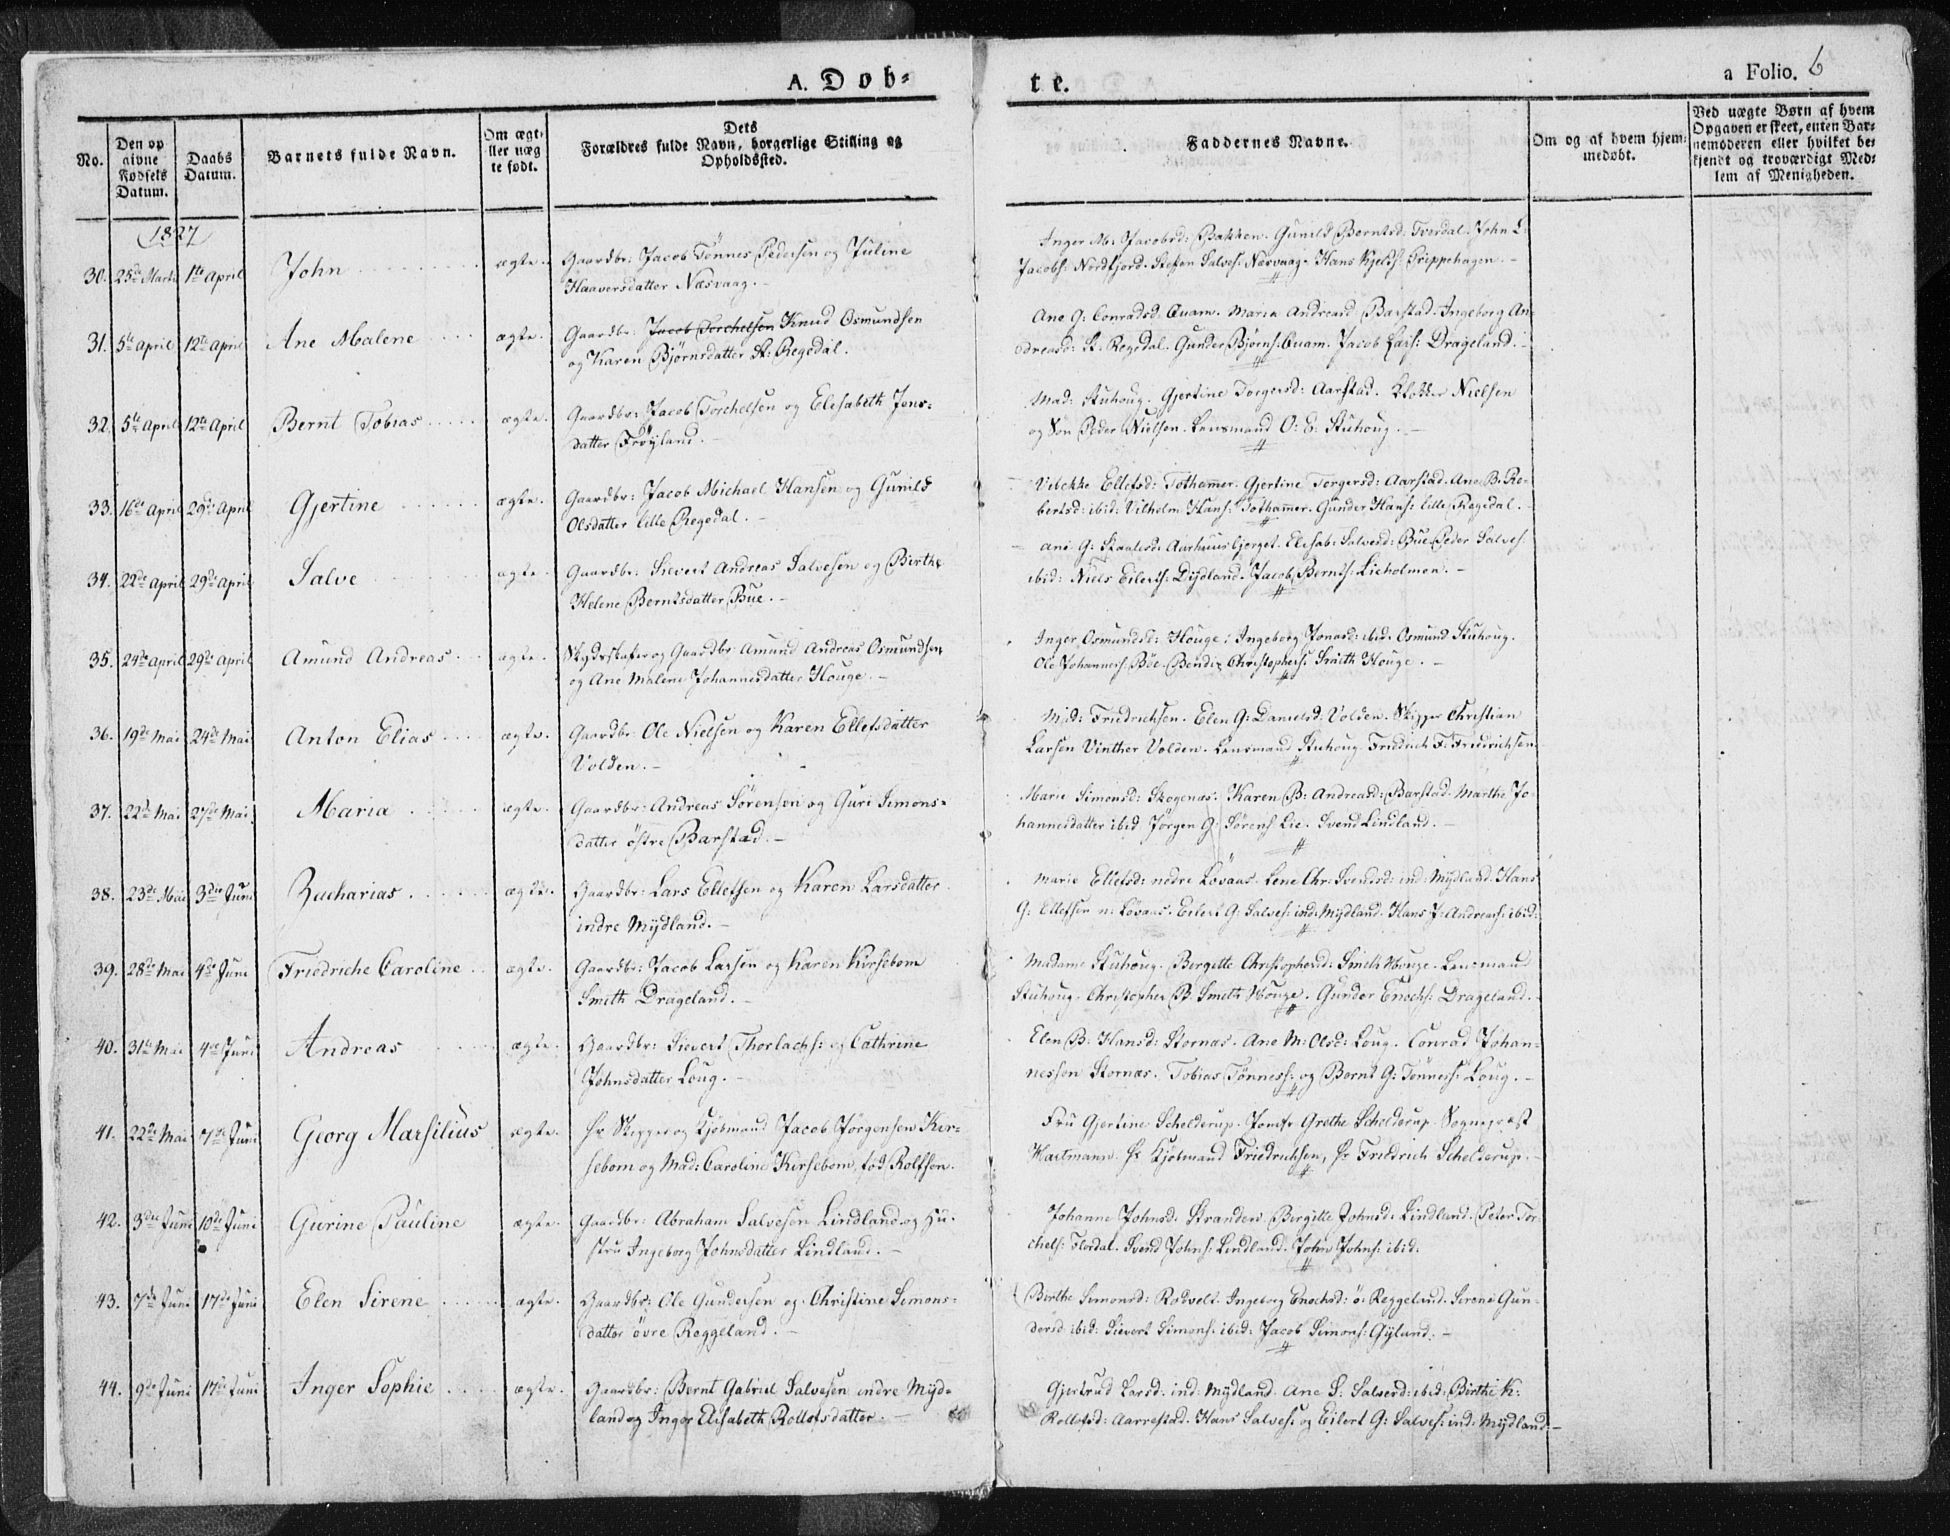 A. Døb-
te.
a Folio. 6
No.
Den op
givne
Fødsels
Datum.
Daabs
Datum.
Barnets fulde Navn.
Om ægt-
ller uæg
te født.
Dets
Forældres fulde Navn, borgerlige Stilling og
Opholdssted.
Faddernes Navne.
Om og af hvem hjem-
medøbt.
Ved uægte Børn af hvem
Opgaven er skeet, enten Bar-
nemoderen eller hvilket be-
kjendt og troværdigt Med-
lem af Menigheden.
1827
30. 25de Marts 1ste April John ægte. Gaardbr: Jacob Tönnes Pedersen og Juline
Haaversdatter Næsvaag.
Inger M: Jacobsd: Bakken. Gunild Berntsd: Tverdal. John L:
Jacobs: Nordfjord. Stefen Salves: Næsvaag. Hans Kjelds: Treppehagen.
31. 5te April 12te April Ane Malene ægte. Gaardbr: Jacob Torchelsen Knud Osmundsen
og Karen Björnsdatter St: Regedal.
Ane G: Conradsd: Quam. Maria Andreasd: Barstad. Ingeborg An
dreasd: St. Regedal. Gunder Björns: Quam. Jacob Lars: Drageland.
32. 5te April 12te April Bernt Tobias ægte. Gaardbr: Jacob Torchelsen og Elisabeth Jons-
datter Fröyland.
Mad: Stuhoug. Gjertine Torgersd: Aarstad. Klokker Nielsen
og Sön Peder Nielsen. Lensmand O: E: Stuhoug.
33. 16de April 29de April Gjertine ægte. Gaardbr: Jacob Michael Hansen og Gunild
Olsdatter lille Regedal.
Vibekke Ellefsd: Tothammer. Gjertine Torgersd: Aarstad. Ane B. Ro-
bertsd: ibid: Vilhelm Hans: Tothammer. Gunder Hans: lille Regedal.
34. 22de April 29de April Salve ægte. Gaardbr: Sievert Andreas Salvesen og Birthe
Helene Berntsdatter Bue.
Ane G: Staalesd: Aarhuusbjerget. Elisab: Salvesd: Bue. Peder Salves:
ibid: Niels Eilerts: Dydland. Jacob Bernts: Lieholmen.
35. 24de April 29de April Amund Andreas ægte. Skydsskafer og Gaardbr Amund Andreas Osmundsen
og Ane Malene Johannesdatter Houge.
Inger Osmundsd: Houge: Ingeborg Jonasd: ibid. Osmund Stuhoug.
Ole Johanness: Böe. Bendix Christophers: Smith Houge.
36. 19de Mai 24de Mai Anton Elias ægte. Gaardbr: Ole Nielsen og Karen Ellefsdatter
Volden.
Mad: Friedrichsen. Elen G: Danielsd: Volden. Skipper Christian
Larsen Vinther Volden. Lensmand Stuhoug. Friedrich F: Friedrichsen.
37. 22de Mai 27de Mai Maria ægte. Gaardbr: Andreas Sörensen og Guri Simons-
datter östre Barstad.
Marie Simonsd: Skogenæs. Karen B: Andreasd: Barstad. Marthe Jo
hannesdatter ibid Jörgen G: Sörens: Lie. Svend Lindland.
38. 23de Mai 3die Juni Zacharias ægte. Gaardbr: Lars Ellefsen og Karen Larsdatter
indre Mydland.
Marie Ellefsd: nedre Lövaas. Lene Chr: Svendsd: ind: Mydland. Hans
G: Ellefsen n: Lövaas. Eilert G: Salves: ind: Mydland. Hans J: Andreas: ibid:
39. 28de Mai 4de Juni Friedriche Caroline ægte. Gaardbr: Jacob Larsen og Karen Kirsebom
Smith Drageland.
Madame Stuhoug. Bergitte Christophersd: Smith Houge. Lensmand
Stuhoug. Christopher B. Smith Houge. Gunder Enochs: Drageland.
40. 31te Mai 4de Juni Andreas ægte. Gaardbr: Sievert Thorlachs: og Cathrine
Johnsdatter Loug.
Elen B: Hansd: Stornæs. Ane M: Olsd: Loug. Conrad Johan-
nessen Stornæs. Tobias Tönness: og Bernt G: Tönness: Loug.
41. 22de Mai 7de Juni Georg Marsilius ægte. Hr Skipper og Kjöbmand Jacob Jörgensen Kir-
sebom og Mad: Caroline Kirsebom, föd Rolfsen.
Fru Gjertine Schelderup. Jomfr Grethe Schelderup. Sognepræst
Hartmann. Hr Kjöbmand Friedrichsen, Hr Fredrich Schelderup.
42. 3die Juni 10de Juni Gurine Pauline ægte. Gaardbr: Abraham Salvesen Lindland og Hu-
stru Ingeborg Johnsdatter Lindland.
Johanne Johnsd: Stranden. Bergitte Johnsd: Lindland. Peter Tor-
chels: Flordal. Svend Johns: Lindland. John Johns: ibid:
43. 7de Juni 17de Juni Elen Sirene ægte. Gaardbr: Ole Gundersen og Christine Simons-
datter övre Reggeland.
Birthe Simonsd: Rodvelt. Ingeborg Enochsd: ö: Reggeland. Sirene Gun-
dersd: ibid: Sievert Simons: ibid: Jacob Simons: Gyland.
44. 9de Juni 17de Juni Inger Sophie ægte. Gaardbr: Bernt Gabriel Salvesen indre Myd-
land og Inger Elisabeth Rollofsdatter.
Gjertrud Larsd: ind: Mydland. Ane S: Salvesd: ibid: Birthe K:
Rollofsd: Aarrestad. Hans Salves: og Eilert G: Salves: ind: Mydland.